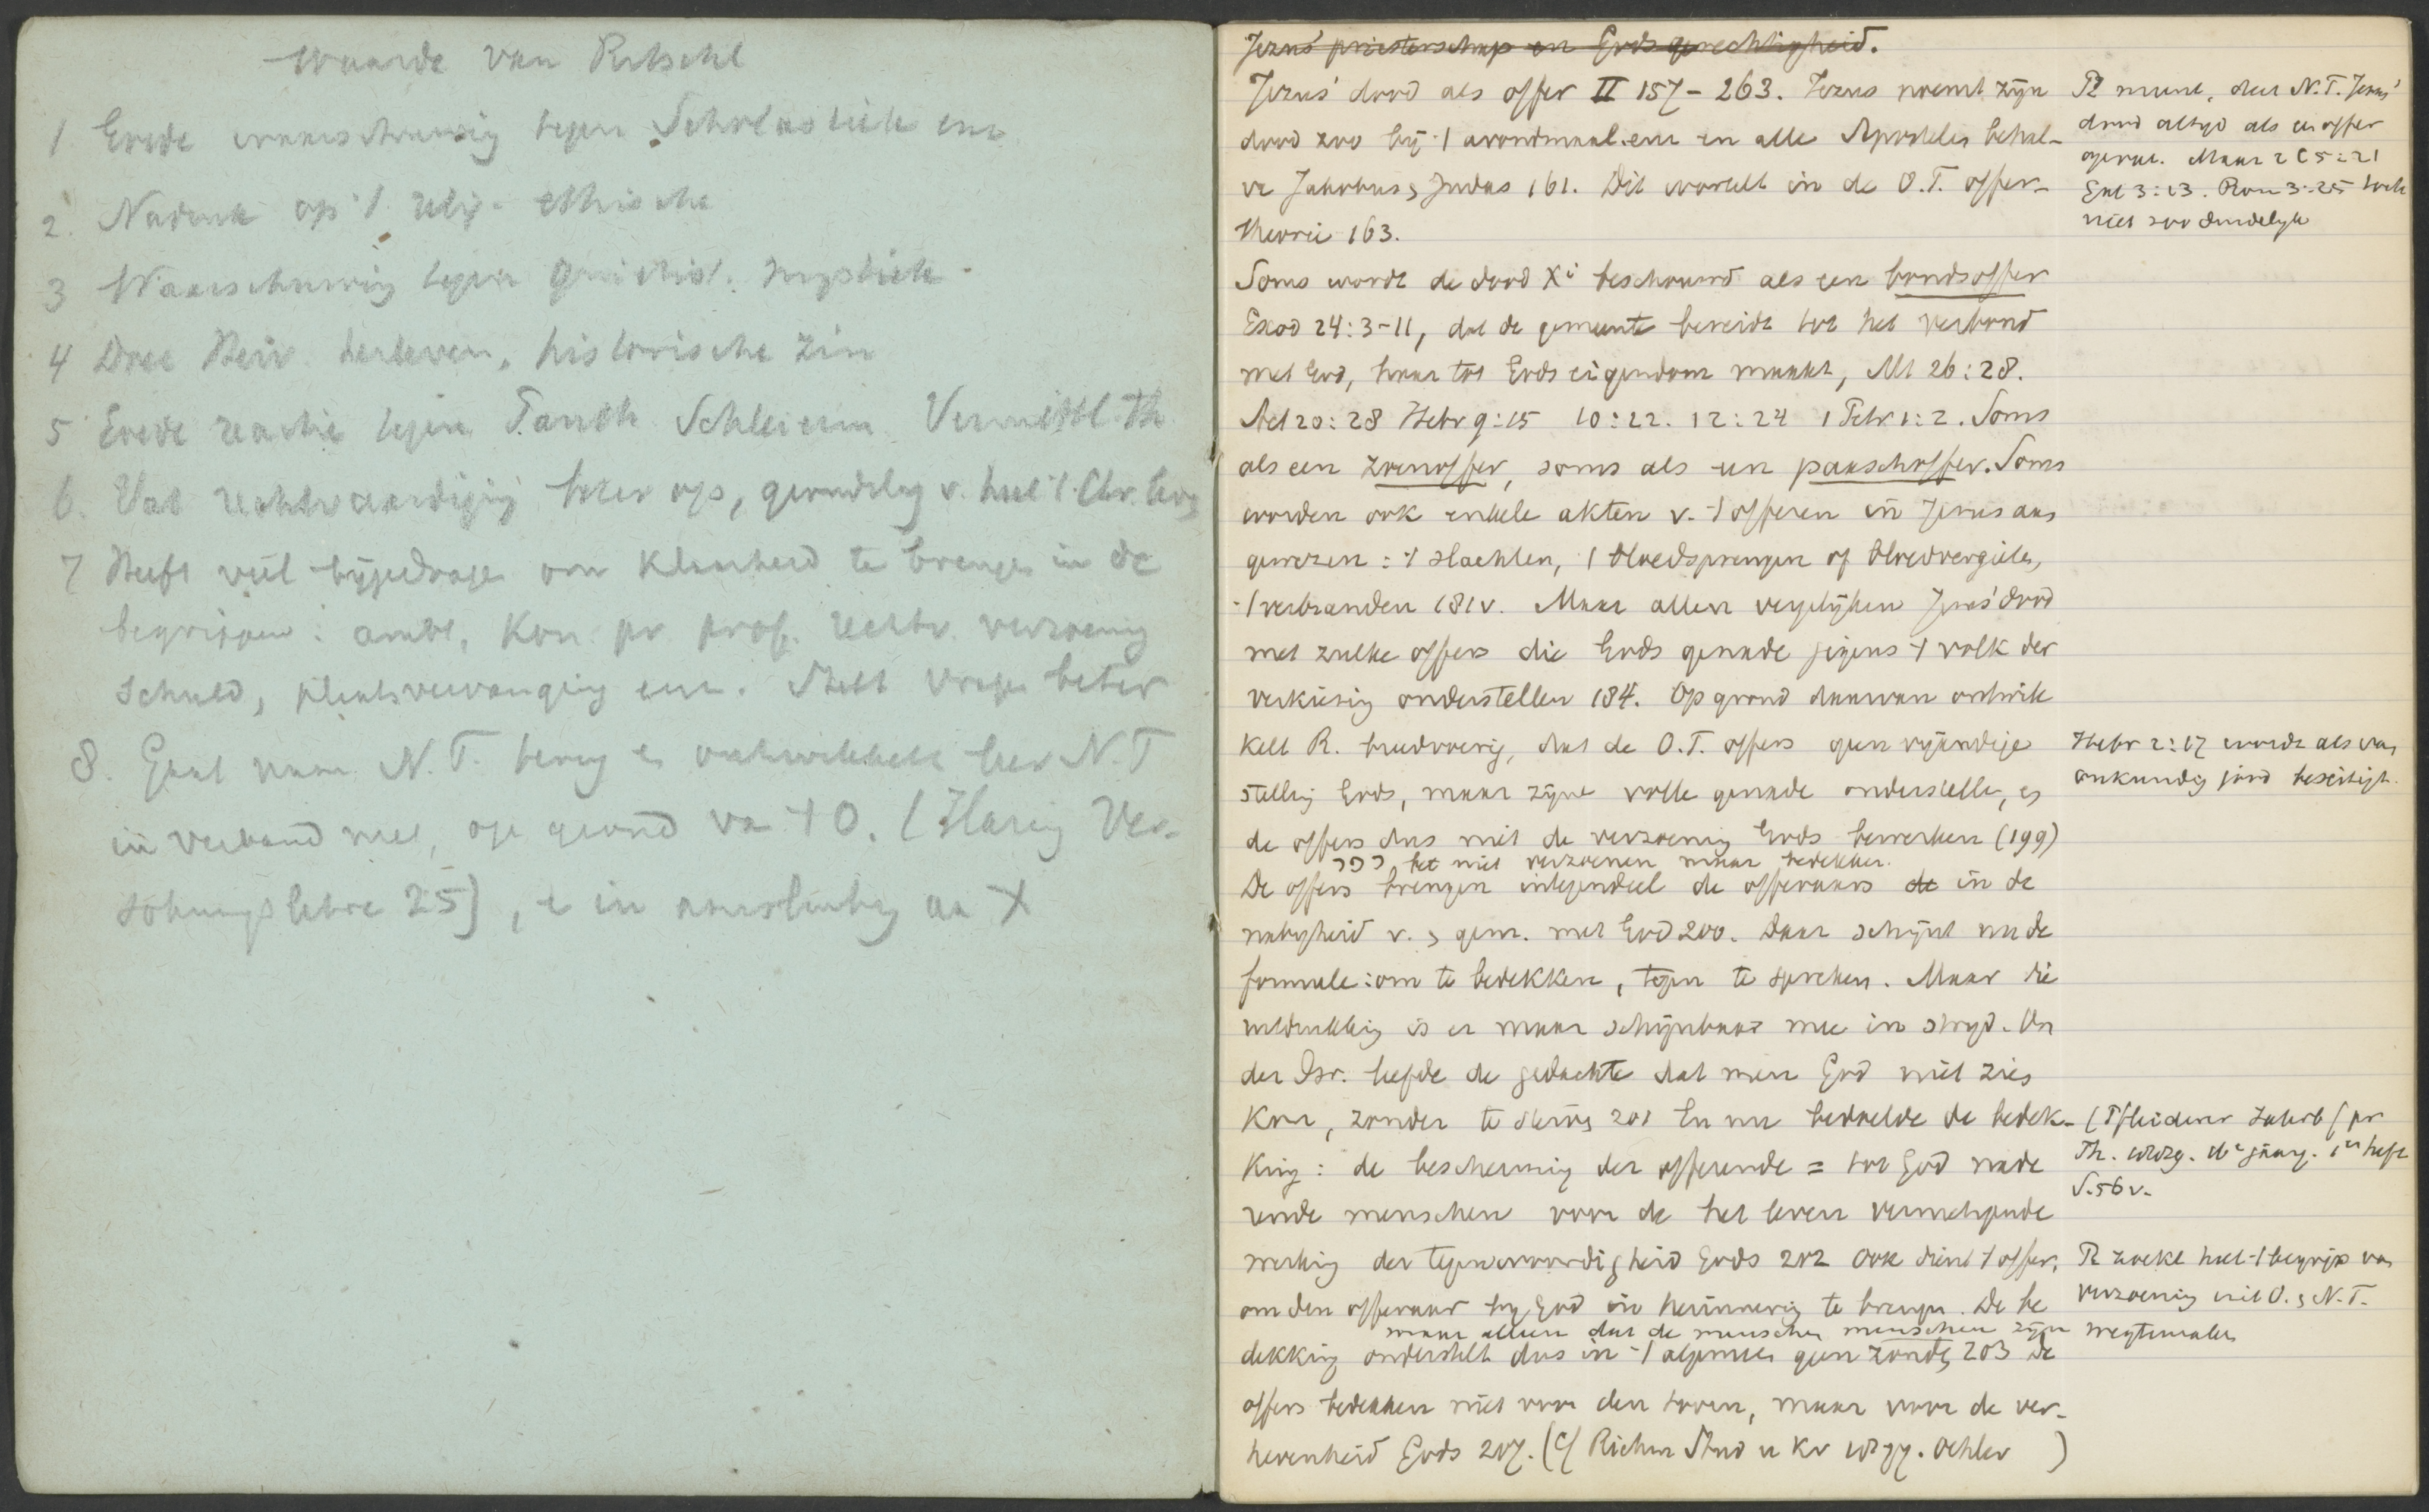 Waarde van Ritschl
1 Goede waarschuwing tegen Scholastiek enz
2. Nadruk op 't relig. ethische
3 Waarschuwing tegen Quietist. mystiek.
4 Doet Heir herleven, historische zin
5 Goede reactie tegen Pantheh Schleierm Vermittl. Th
6. Vat rechtvaardiging beter op, grondslag v. heel 't Chr. lev
7 Heeft veel bijgedrage om klaarheid te brenge in de
begrippen: ambt, Kon. pr prof. rechtv. verzoening
schuld, plaatsvervanging enz. Stelt vrage beter
8. Gaat naar N.T. terug & ontwikkelt het N.T
in verband met, op grond va 't O. (Häring Ver-
söhnungslehre 25), & in aansluiting aa X
Jezus' priesterschap en Gods gerechtigheid.
Jezus' dood als offer II 157-263. Jezus noemt zijn
dood zoo bij 't avondmaal enz en alle Apostelen behal-
ve Jakobus, Judas 161. Dit wortelt in de O.T. offer-
theorie 163.
R meent, dat N.T. Jezus'
dood altijd als een offer
opvat. Maar 2 C 5:21
Gal 3:13. Rom 3:25 toch
niet zoo duidelijk
Soms wordt de dood Xi beschouwd als een bondsoffer
Exod 24:3-11, dat de gemeente bereidt tot het verbond
met God, haar tot Gods eigendom maakt, Mt 26:28.
Act 20:28 Hebr 9:15 10:22. 12:24 1 Petr 1:2. Soms
als een zoenoffer, soms als een paaschoffer. Soms
worden ook enkele akten v. 't offeren in Jezus aan
gewezen: 't slachten, 't bloedsprengen of bloedvergieten,
't verbranden 181v. Maar allen vergelijken Jezus' dood
met zulke offers die Gods genade jegens 't volk der
verkiezing onderstellen 184. Op grond daarvan ontwik
kelt R. breedvoerig, dat de O.T. offers geen vijandige
stelling Gods, maar zijne volle genade onderstelle, en
de offers dus niet de verzoening Gods bewerken (199)
כפר het niet verzoenen maar bedekken.
De offers brengen integendeel de offeraars de in de
nabijheid v. , gem. met God 200. Daar schijnt nu de
formule: om te bedekken, tegen te spreken. Maar die
uitdrukking is er maar schijnbaar mee in strijd. On
der Isr. leefde de gedachte dat men God niet zien
Hebr 2:17 wordt als van
onkundig jood beseitigt.
kon, zonder te sterven 201 En nu bedoelde de bedek-
king: de bescherming der offerende = tot God nade
rende menschen voor de het leven vernietigende
werking der tegenwoordigheid Gods 202 Ook dient 't offer,
om den offeraar bij God in herinnering te brengen. De be
maar alleen dat de menschen menschen zijn
dekking onderstelt dus in 't algemeen geen zonde, 203 De
offers bedekken niet voor den toorn, maar voor de ver-
hevenheid Gods 207. (Cf Riehm Stud u Kr 1877. Oehler )
(Pfleiderer Jahrb f pr
Th. 1889. 16e jaarg. 1es heft
S. 56 v.
R zoekt heel 't begrip van
verzoening uit O. , N.T.
wegtemaken